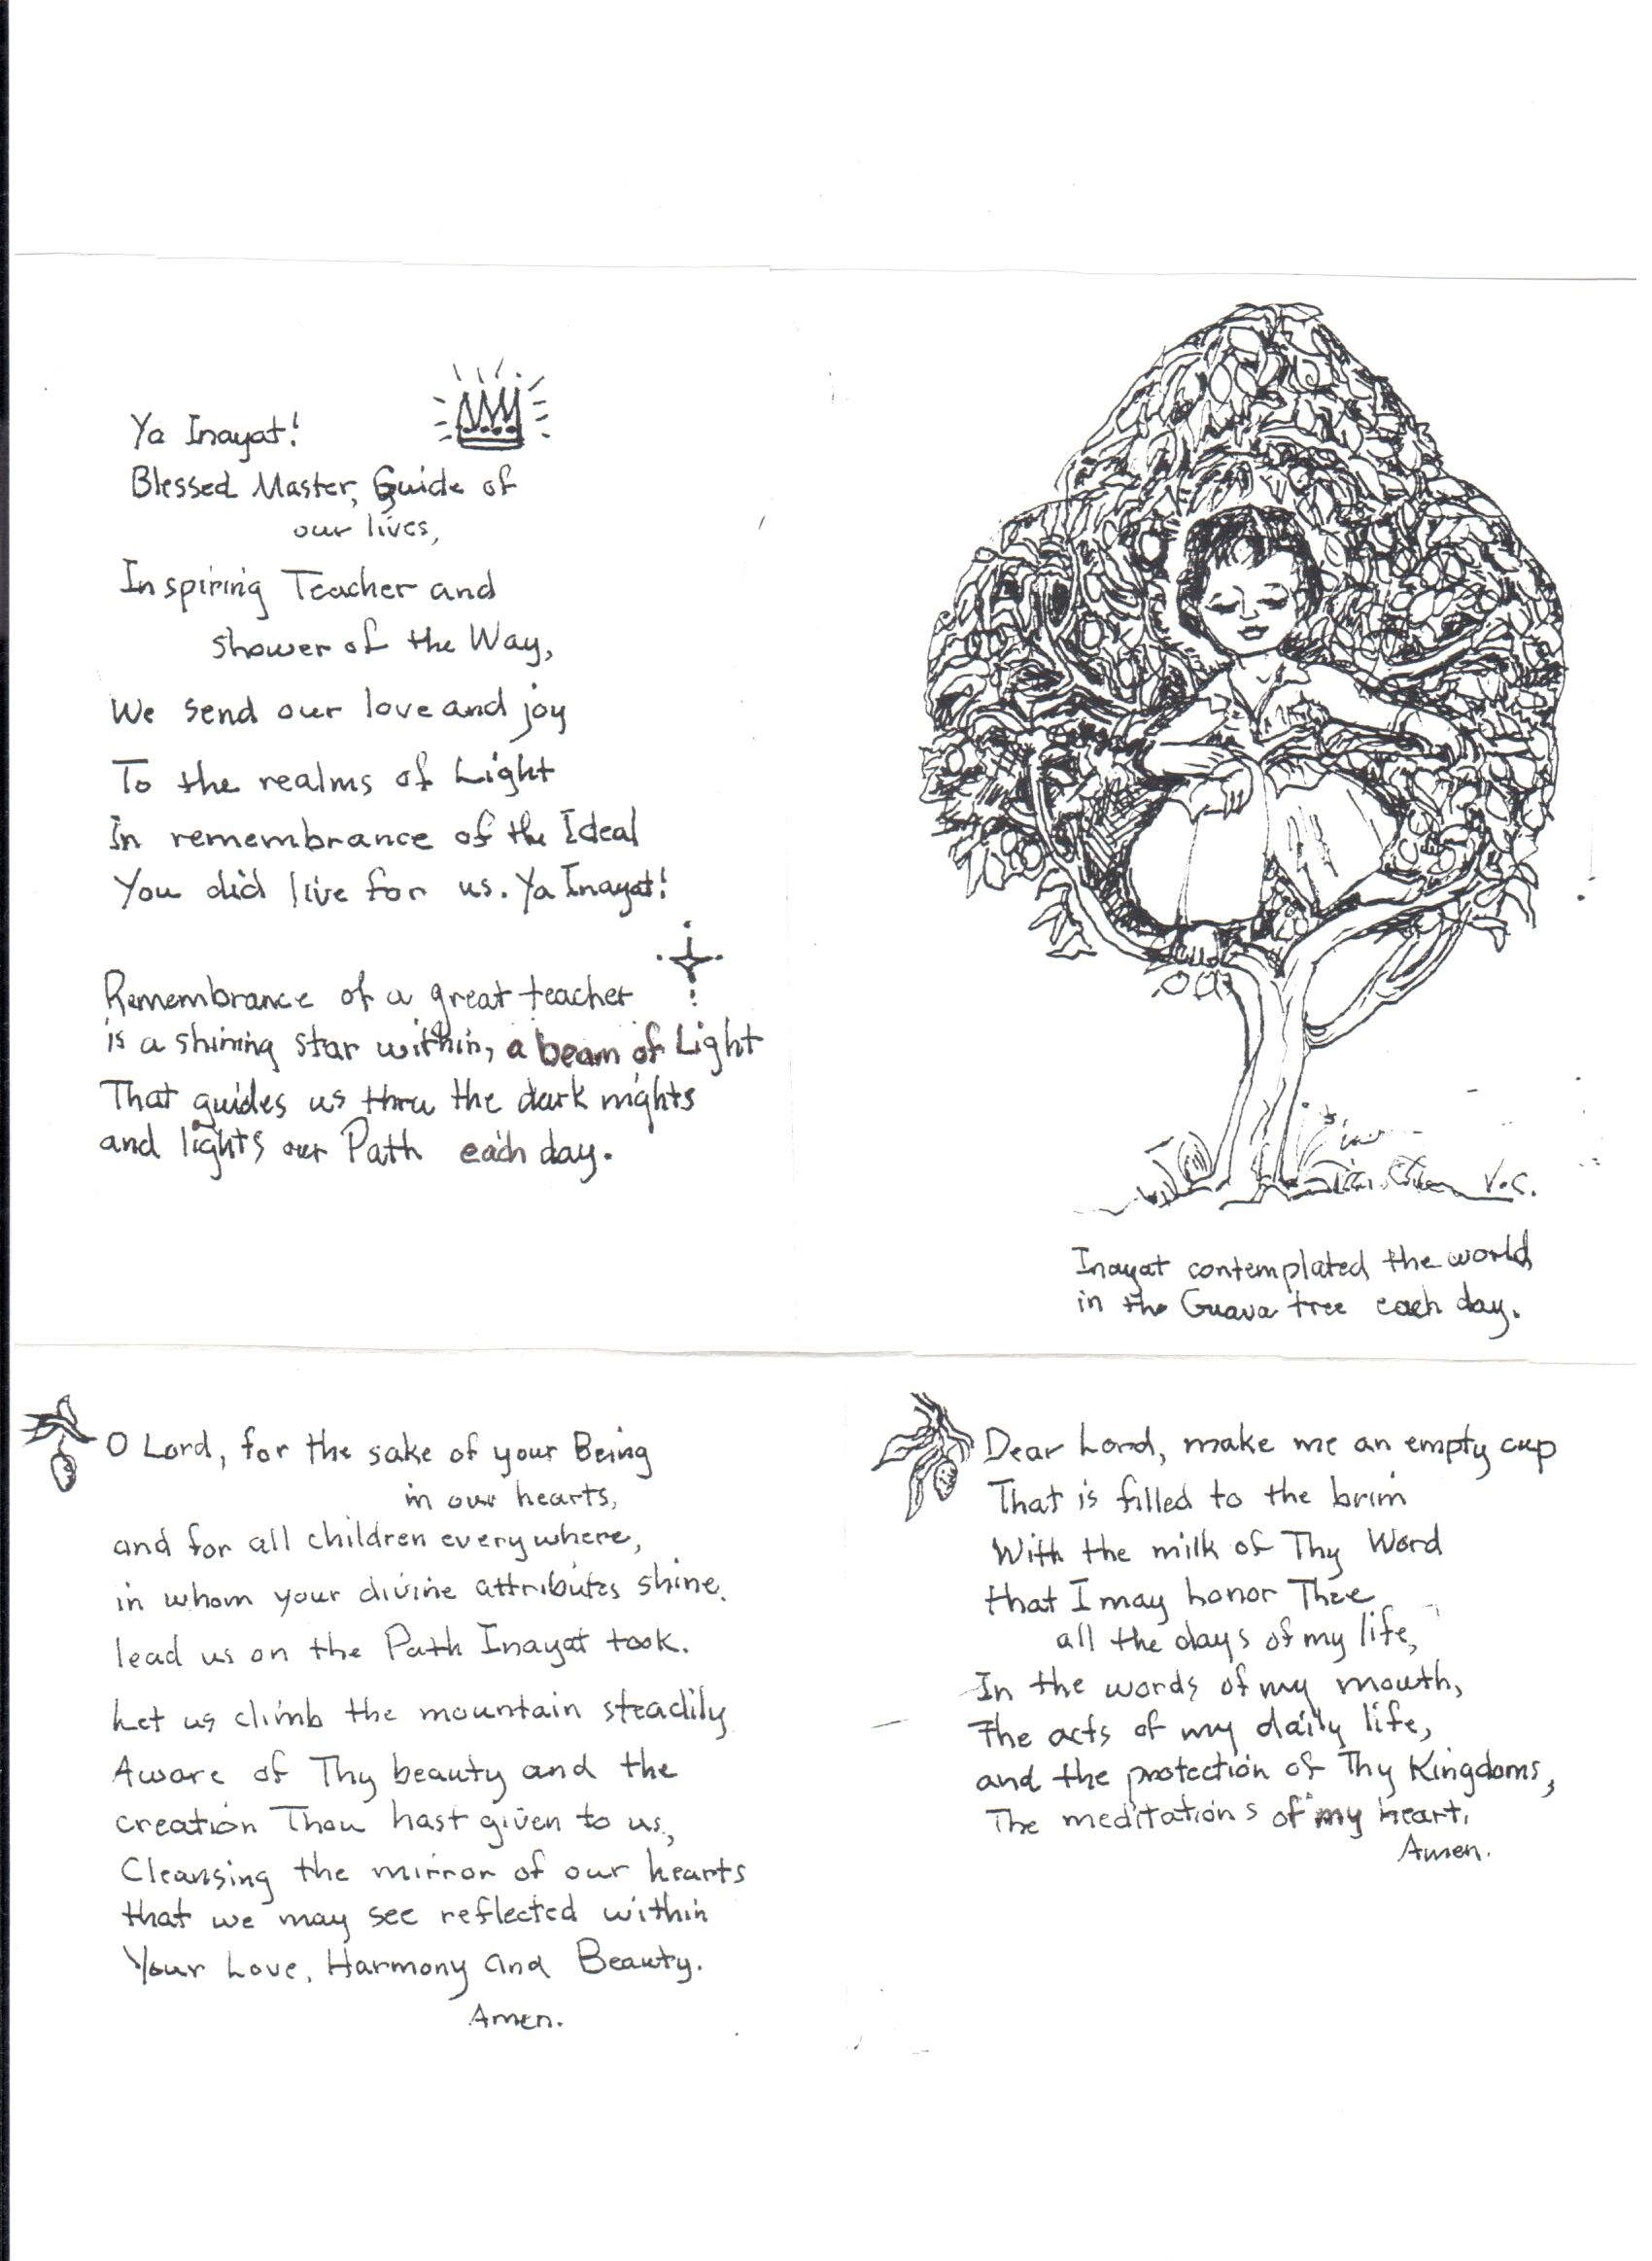 Ya Inayat!
Blessed Master, Guide of
our lives,
Inspiring Teacher and
shower of the Way,
We send our love and joy
To the realms of Light
In remembrance of the Ideal
You did live for us. Ya Inayat!
Remembrance of a great teacher
is a shining star within, a beam of Light
That guides us thru the dark nights
and lights our Path each day.
V.C.
Inayat contemplated the world
in the Guava tree each day.
O Lord, for the sake of your Being
in our hearts,
and for all children everywhere,
in whom your divine attributes shine,
lead us on the Path Inayat took.
Let us climb the mountain steadily
Aware of Thy beauty and the
creation Thou hast given to us,
Cleansing the mirror of our hearts
that we may see reflected within
Your Love, Harmony and Beauty.
Amen.
Dear Lord, make me an empty cup
That is filled to the brim
With the milk of Thy Word
that I may honor Thee
all the days of my life,
In the words of my mouth,
The acts of my daily life,
and the protection of Thy Kingdoms,
The meditations of my heart.
Amen.